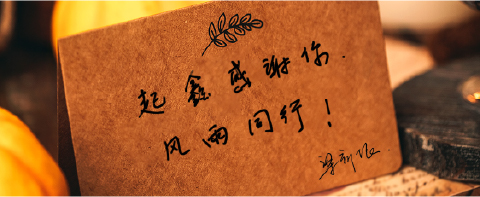 起鑫感谢你.
风雨同行！